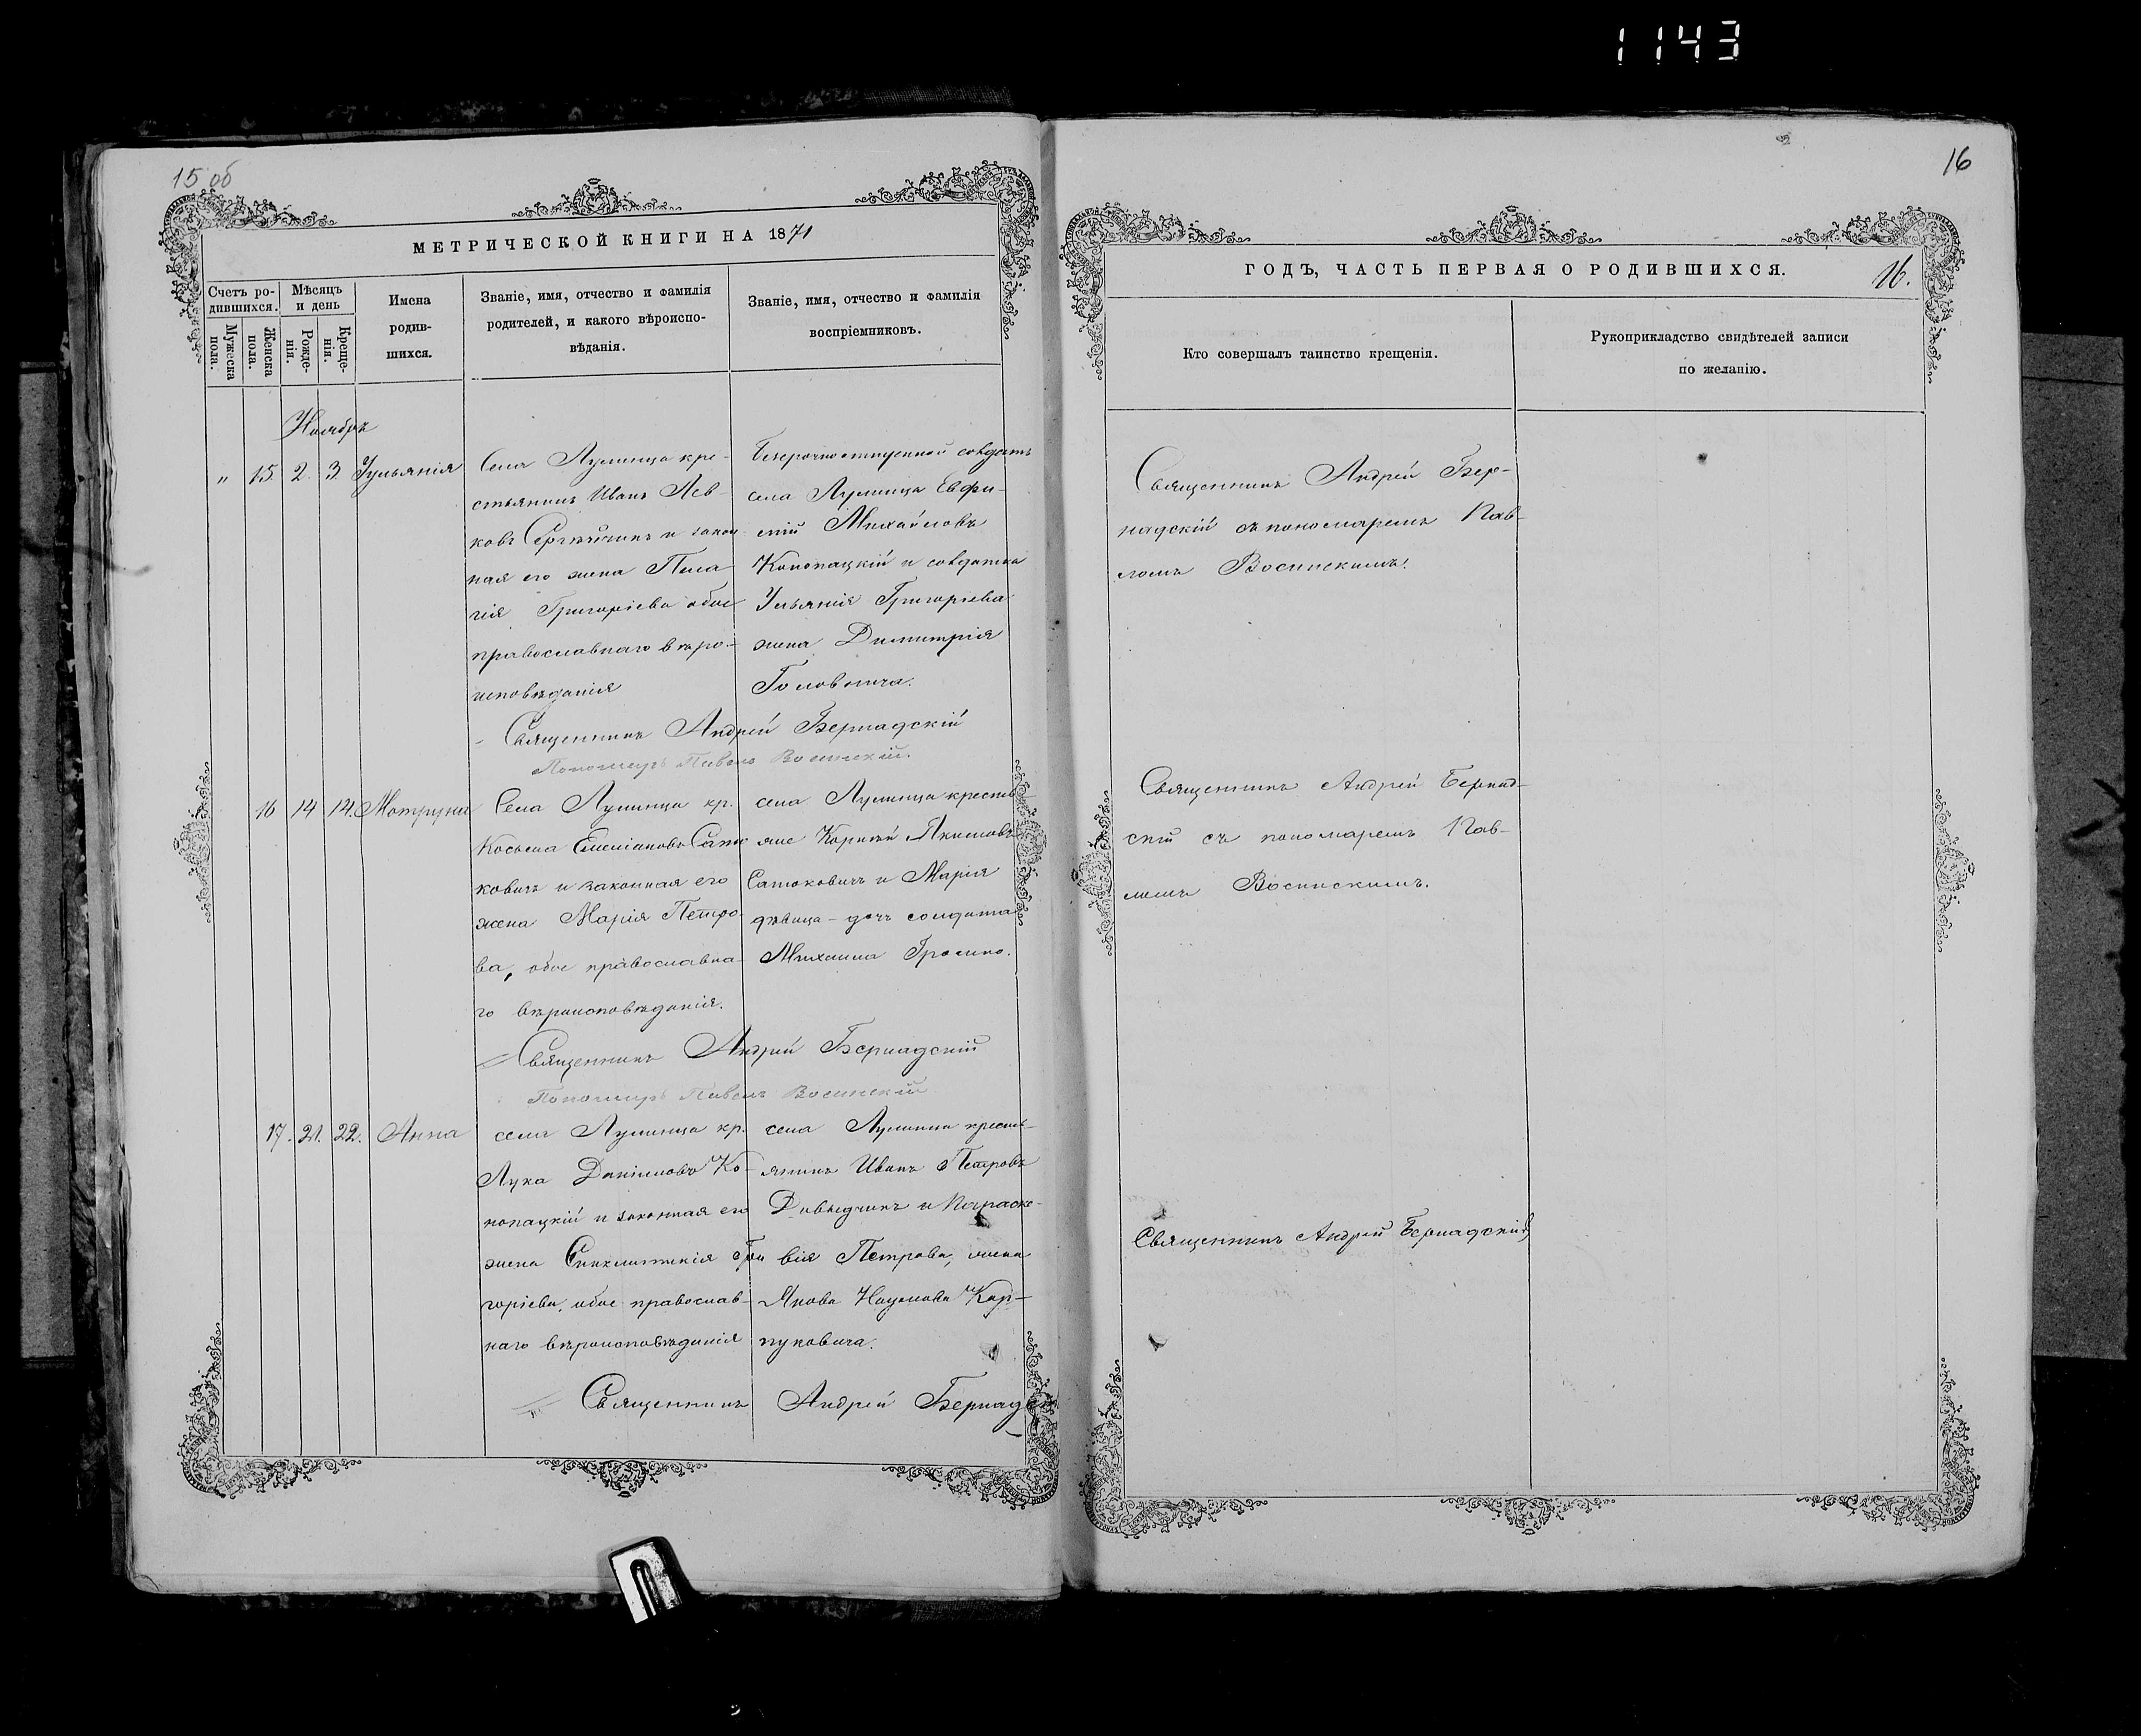 1143
15 об
16
МЕТРИЧЕСКОЙ КНИГИ НА 1871
Счетъ ро-
дившихся.
Мужеска
пола.
Женска
пола.
Мѣсяцъ
и день
Рожде-
нія.
Креще-
нія.
Имена
родив-
шихся.
Званіе, имя, отчество и фамилія
родителей, и какого вѣроиспо-
вѣданія.
Званіе, имя, отчество и фамилія
воспріемниковъ.
Ноябрь
" 15 2. 3 Іульянія
Села Лунинца кре-
стьянинъ Иванъ Лев-
ковъ и закон
ная его жена Пела
гія Григоріева обое
православнаго вѣро-
исповѣданія
села Лунинца Евфи-
мій Михайловъ
Конопацкій и солдатка
Ульянія Григоріева
жена Димитрія
Головчича.
Священникъ Андрей Бернадскій
Пономарь Павелъ
16 14 14. Мотруна
Села Лунинца кр.
Косьма Емеліановъ
ковичъ и законная его
жена Марія Петро-
ва, обое православна-
го вѣроисповѣданія.
села Лунинца крестья
яне Корнѣй Якимовъ
и Марія
дѣвица - дочь солдата
Михаила
Священникъ Андрей Бернадскій
Пономарь Павелъ
17. 21. 22. Анна
села Лунинца кр.
Лука Даніиловъ Ко-
нопацкій и законная его
жена Синклитикія Гри
горіева, обое православ-
наго вѣроисповѣданія
села Лунинца крестья-
янинъ Иванъ Петровъ
и Параске-
вія Петрова, жена
Якова Наумова Кар-
пуковича.
Священникъ Андрей Бернадскій
ГОДЪ, ЧАСТЬ ПЕРВАЯ О РОДИВШИХСЯ.
16.
Кто совершалъ таинство крещенія.
Рукоприкладство свидѣтелей записи
по желанію.
Священникъ Андрей Бер-
надскій съ пономаремъ Пав-
ломъ
Священникъ Андрей Бернад-
скій съ пономаремъ Пав-
ломъ
Священникъ Андрей Бернадскій